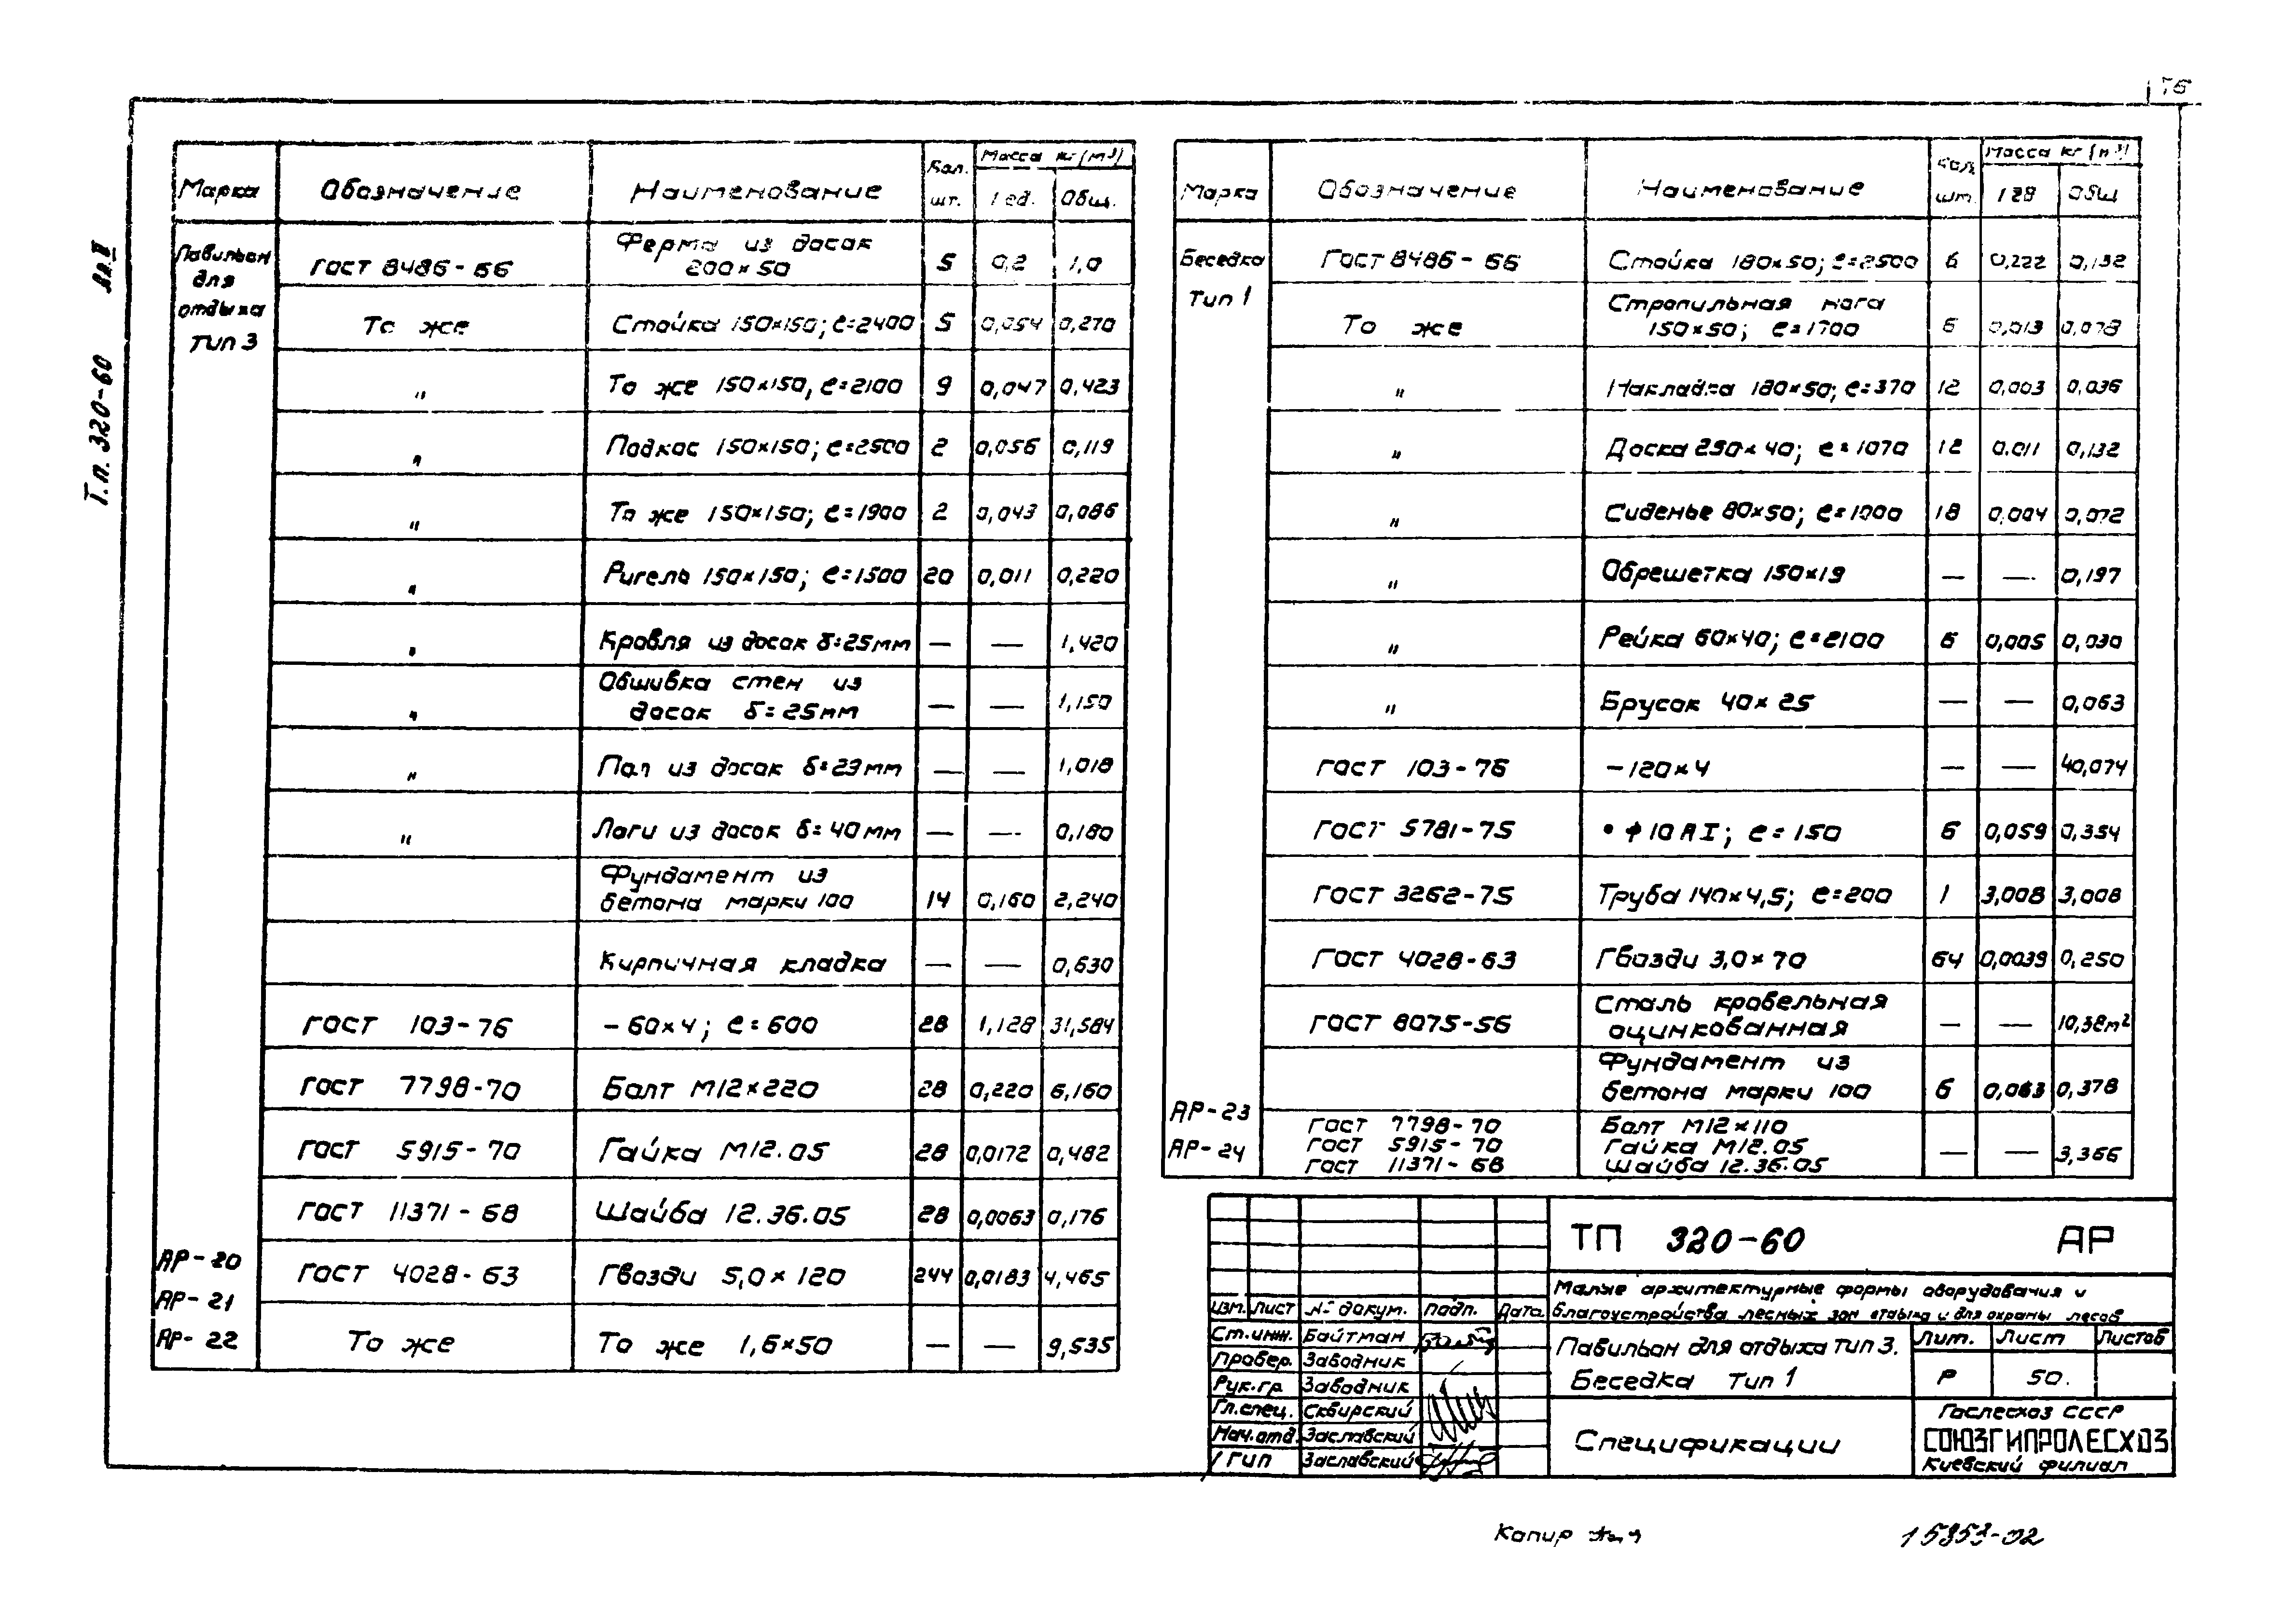 Т.п. 320-60 Ал.II
Марка Обозначение Наименование Кол. шт. Масса кг (м³) 1 ед. Общ.
Павильон для отдыха тип 3
ГОСТ 8486-66 Ферма из досок 200×50 5 0,2 1,0
То же Стойка 150×150; ℓ=2400 5 0,054 0,270
" То же 150×150, ℓ=2100 9 0,047 0,423
" Подкос 150×150; ℓ=2500 2 0,056 0,119
" То же 150×150; ℓ=1900 2 0,043 0,086
" Ригель 150×150; ℓ=1500 20 0,011 0,220
" Кровля из досок δ=25мм — — 1,420
" Обшивка стен из досок δ=25мм — — 1,150
" Пол из досок δ=29мм — — 1,018
" Лаги из досок δ=40мм — — 0,180
Фундамент из бетона марки 100 14 0,160 2,240
Кирпичная кладка — — 0,630
ГОСТ 103-76 -60×4; ℓ=600 28 1,128 31,584
ГОСТ 7798-70 Болт М12×220 28 0,220 6,160
ГОСТ 5915-70 Гайка М12.05 28 0,0172 0,482
ГОСТ 11371-68 Шайба 12.36.05 28 0,0063 0,176
ГОСТ 4028-63 Гвозди 5,0×120 244 0,0183 4,465
То же То же 1,6×50 — — 9,535
АР-20
АР-21
АР-22
Марка Обозначение Наименование Кол. шт. Масса кг (м³) 1 ед Общ
Беседка Тип 1
ГОСТ 8486-66 Стойка 180×50; ℓ=2500 6 0,222 0,132
То же Стропильная нога 150×50; ℓ=1700 6 0,013 0,078
" Накладка 180×50; ℓ=370 12 0,003 0,036
" Доска 250×40; ℓ=1070 12 0.011 0,132
" Сиденье 80×50; ℓ=1000 18 0,004 0,072
" Обрешетка 150×19 — — 0,197
" Рейка 60×40; ℓ=2100 6 0,005 0,030
" Брусок 40×25 — — 0,063
ГОСТ 103-76 -120×4 — — 40,074
ГОСТ 5781-75 • ф10АI; ℓ=150 6 0,059 0,354
ГОСТ 3262-75 Труба 140×4,5; ℓ=200 1 3,008 3,008
ГОСТ 4028-63 Гвозди 3,0×70 64 0,0039 0,250
ГОСТ 8075-56 Сталь кровельная оцинкованная — — 10,38м²
Фундамент из бетона марки 100 6 0,063 0,378
АР-23
АР-24
ГОСТ 7798-70 Болт М12×110
ГОСТ 5915-70 Гайка М12.05
ГОСТ 11371-68 Шайба 12.36.05 — — 3,366
ТП 320-60 АР
Малые архитектурные формы оборудования и
благоустройства лесных зон отдыха и для охраны лесов
Изм. Лист № докум. Подп. Дата
Ст.инж. Байтман
Провер. Заводник
Рук.гр. Заводник
Гл.спец. Сквирский
Нач.отд. Заславский
ГИП Заславский
Павильон для отдыха тип 3.
Беседка Тип 1
Лит. Лист Листов
Р 50.
Спецификации
Гослесхоз СССР
СОЮЗГИПРОЛЕСХОЗ
Киевский филиал
Копир
15353-02